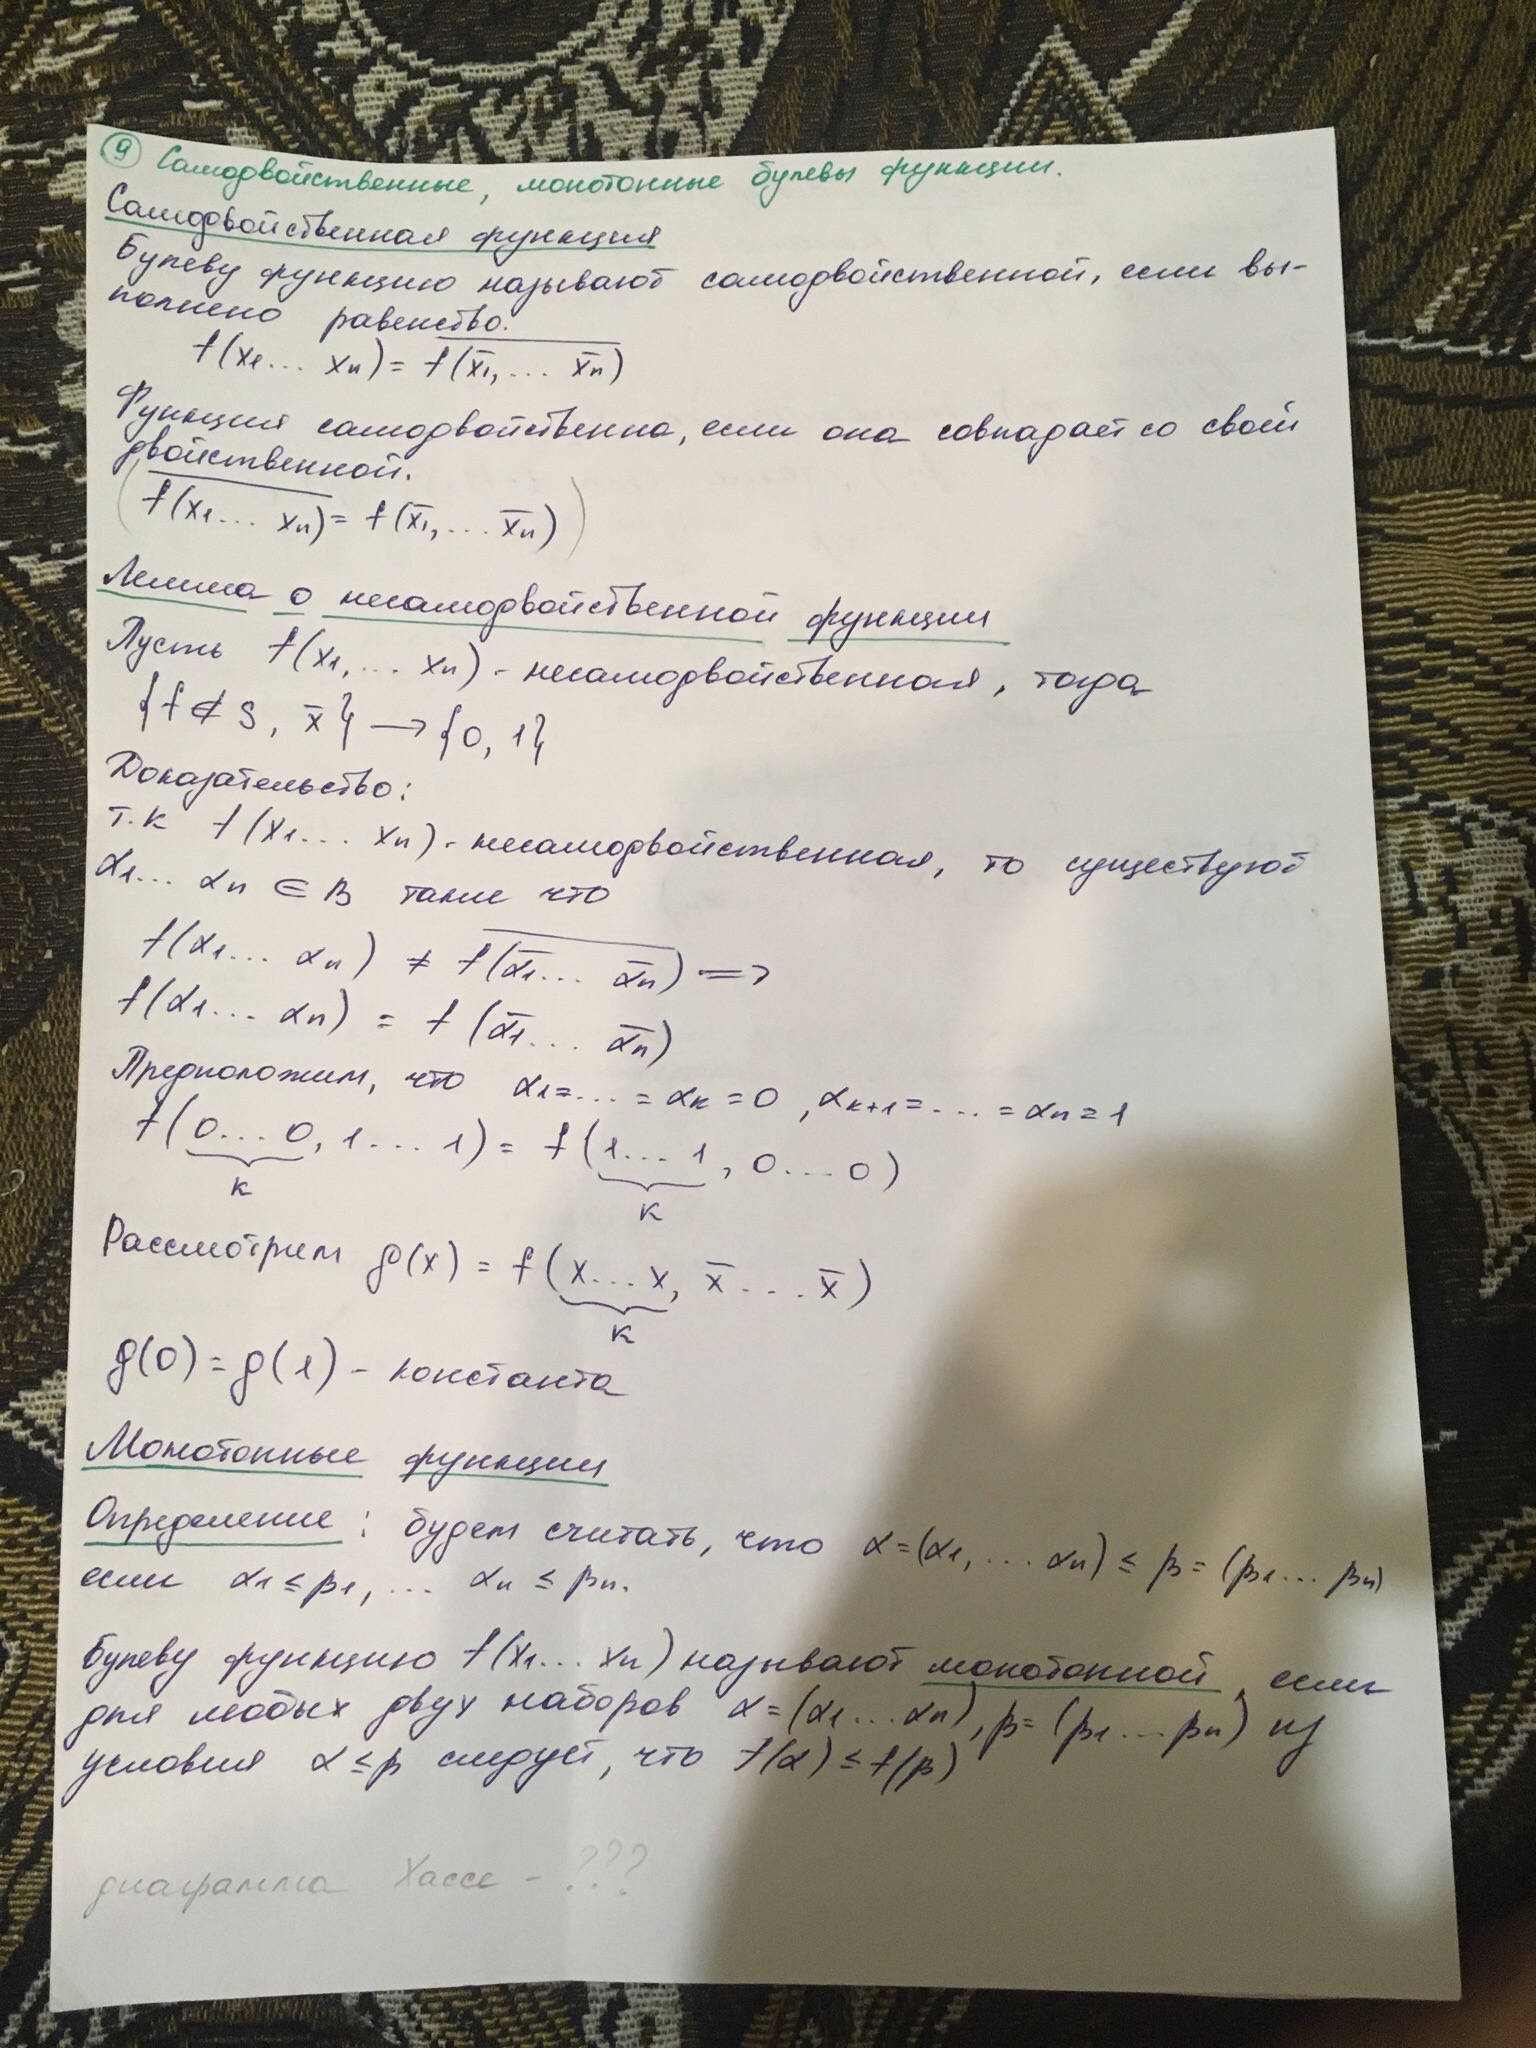 9 Самодвойственные, монотонные булевы функции.
Самодвойственная функция
Булеву функцию называют самодвойственной, если вы-
полнено равенство.
f(x₁... xₙ) = \overline{f(x̄₁, ... x̄ₙ)}
Функция самодвойственна, если она совпадает со своей
двойственной.
(\overline{f(x₁... xₙ)} = f(x̄₁, ... x̄ₙ))
Лемма о несамодвойственной функции
Пусть f(x₁, ... xₙ) - несамодвойственная, тогда
{f ∉ S, x̄} → {0, 1}
Доказательство:
т.к f(x₁... xₙ) - несамодвойственная, то существуют
α₁... αₙ ∈ B такие что
f(α₁... αₙ) ≠ \overline{f(ᾱ₁... ᾱₙ)} =>
f(α₁... αₙ) = f(ᾱ₁... ᾱₙ)
Предположим, что α₁=...=αₖ=0, αₖ₊₁=...=αₙ=1
f(0...0, 1...1) = f(1...1, 0...0)
к к
Рассмотрим g(x) = f(x...x, x̄...x̄)
к
g(0) = g(1) - константа
Монотонные функции
Определение: будем считать, что α=(α₁, ... αₙ) ≤ β=(β₁... βₙ)
если α₁≤β₁, ... αₙ≤βₙ.
Булеву функцию f(x₁... xₙ) называют монотонной, если
для любых двух наборов α=(α₁...αₙ), β=(β₁...βₙ) из
условия α≤β следует, что f(α)≤f(β)
диаграмма Хассе - ???